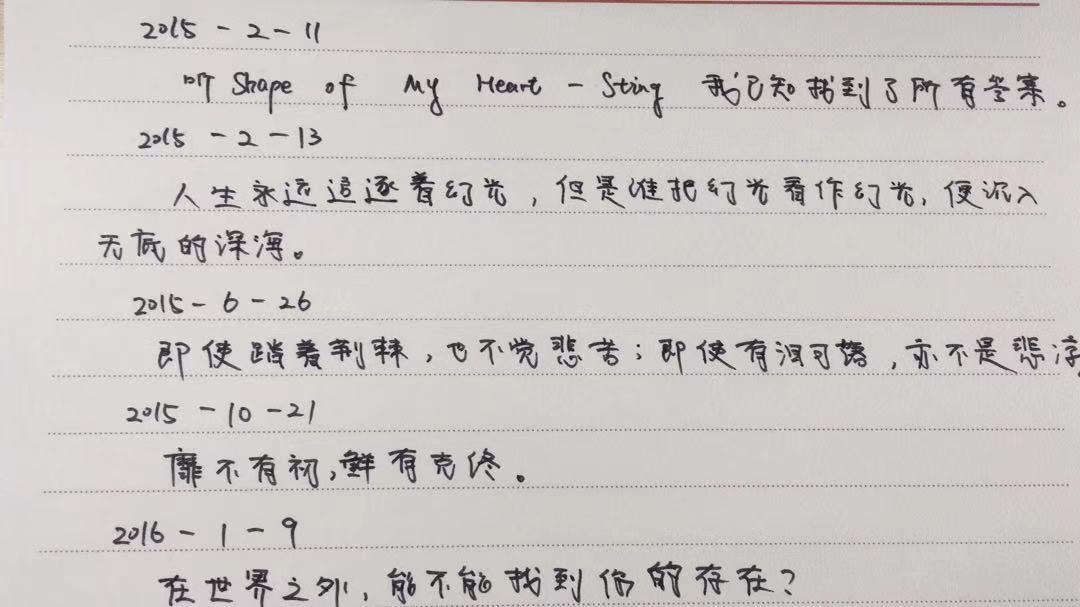 2015-2-11
听 Shape of My Heart - Sting 我已知找到了所有答案。
2015-2-13
人生永远追逐着幻光，但是谁把幻光看作幻光，便沉入
无底的深海。
2015-6-26
即使踏着荆棘，也不觉悲苦；即使有泪可落，亦不是悲凉
2015-10-21
靡不有初，鲜有克终。
2016-1-9
在世界之外，能不能找到你的存在？